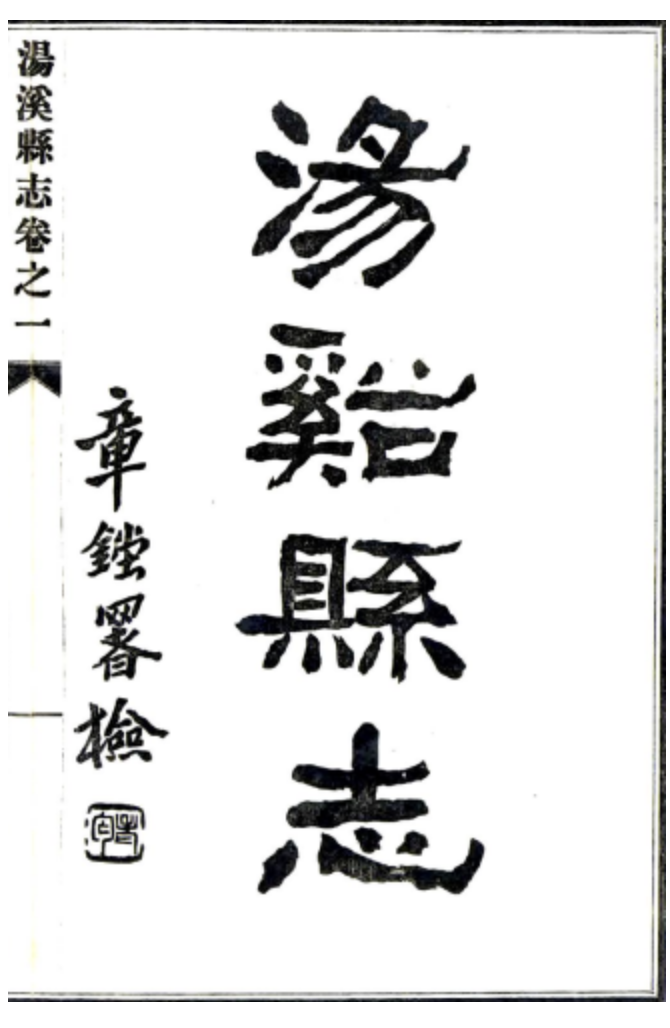 湯谿縣志
章鋆署檢
湯溪縣志卷之一